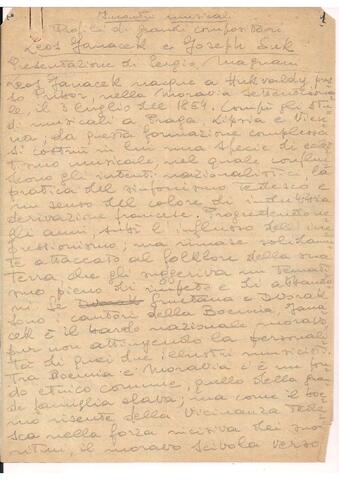 Incontri musicali
1
Profili di grandi compositori
Leos Janacek e Joseph Suk
Presentazione di Sergio Magnani
Leos Janacek nacque a Hukvaldy, pres
so Pribor, nella Moravia settentriona
le, il 3 luglio del 1854. Compì gli stu
di musicali a Praga, Lipsia e Vien
na; da questa formazione complessa
si costruì in lui una specie di
tismo musicale, nel quale conflui
scono gli intenti nazionalistici, la
pratica del sinfonismo tedesco e
un senso del colore di indubbia
derivazione francese. Progredendo
gli anni, subì l'influsso dell'im
pressionismo; ma rimase solidamen
te attaccato al folklore della sua
terra che gli suggeriva un temati
smo pieno di impeto e di abbando
ni. Se Smetana e Dvorak
sono i cantori della Boemia, Jana
cek è il bardo nazionale moravo,
pur non attingendo la personali
tà di quei due illustri musicisti.
Tra Boemia e Moravia c'è un fon
do etnico comune, quello della gran
de famiglia slava; ma come il boe
mo risente della vicinanza tede
sca nella forza incisiva dei suoi
ritmi, il moravo scivola verso